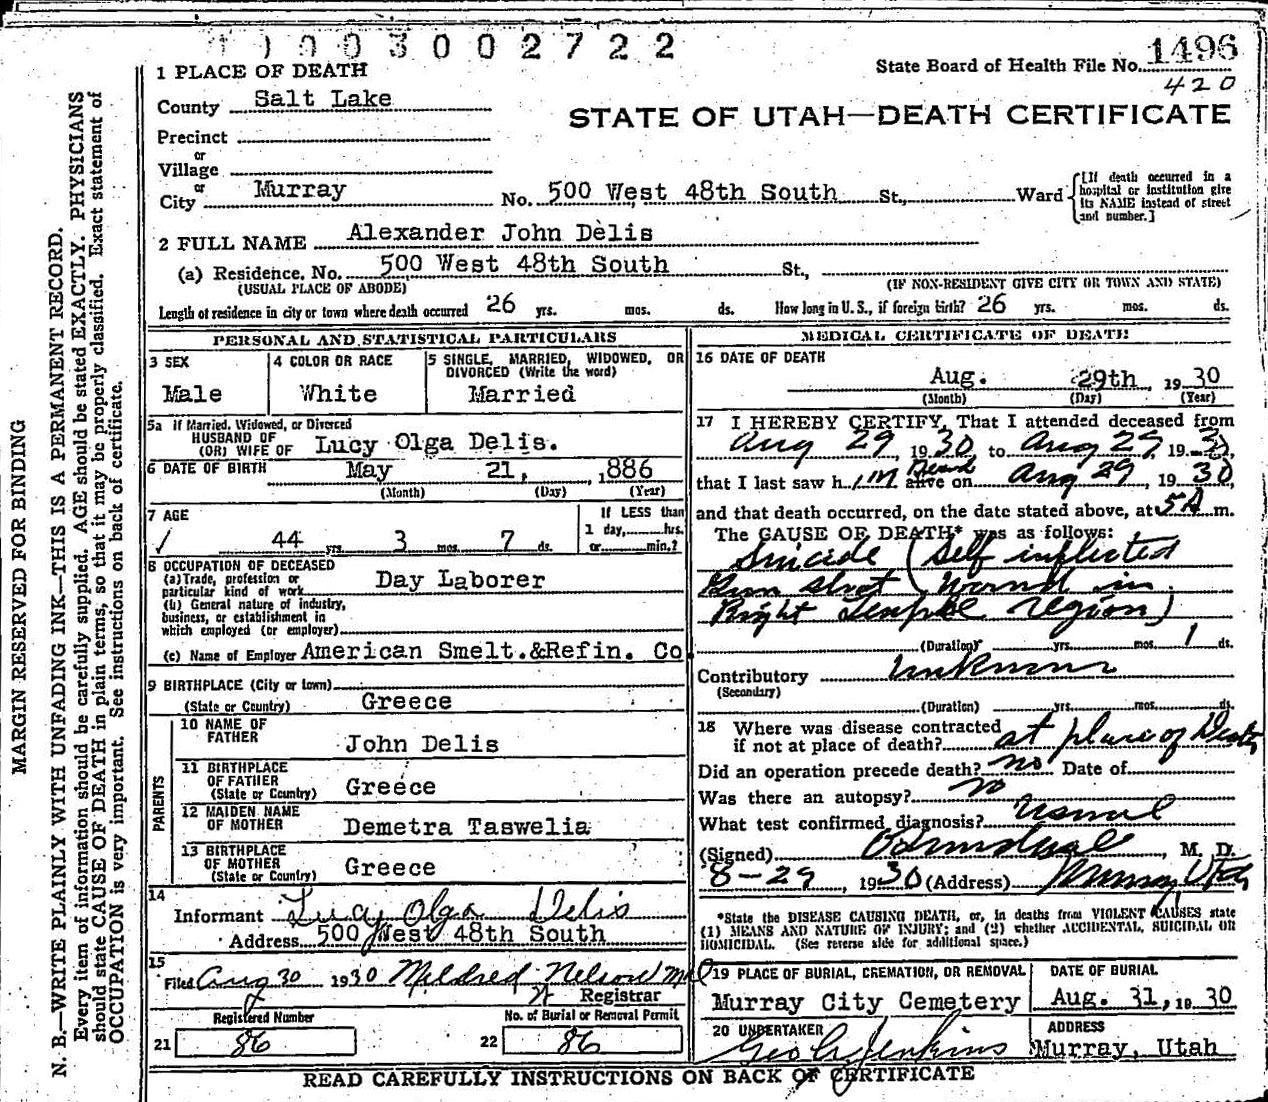 003002722
1496
State Board of Health File No.
420
1 PLACE OF DEATH
County Salt Lake
STATE OF UTAH—DEATH CERTIFICATE
Precinct
or
Village
or
City Murray No. 500 West 48th South St., Ward
[If death occurred in a hospital or institution give its NAME instead of street and number.]
2 FULL NAME Alexander John Delis
(a) Residence, No. 500 West 48th South St.,
(USUAL PLACE OF ABODE) (IF NON-RESIDENT GIVE CITY OR TOWN AND STATE)
Length of residence in city or town where death occurred 26 yrs. mos. ds. How long in U. S., if foreign birth? 26 yrs. mos. ds.
PERSONAL AND STATISTICAL PARTICULARS
3 SEX
Male
4 COLOR OR RACE
White
5 SINGLE, MARRIED, WIDOWED, OR
DIVORCED (Write the word)
Married
5a If Married, Widowed, or Divorced
HUSBAND OF
(OR) WIFE OF Lucy Olga Delis.
6 DATE OF BIRTH May 21, 1886
(Month) (Day) (Year)
7 AGE
44 yrs 3 mos 7 ds.
If LESS than
1 day, hrs.
or min.?
8 OCCUPATION OF DECEASED
(a) Trade, profession or
particular kind of work Day Laborer
(b) General nature of industry,
business, or establishment in
which employed (or employer)
(c) Name of Employer American Smelt.&Refin. Co.
9 BIRTHPLACE (City or town)
(State or Country) Greece
PARENTS
10 NAME OF
FATHER John Delis
11 BIRTHPLACE
OF FATHER
(State or Country) Greece
12 MAIDEN NAME
OF MOTHER Demetra Taswelia
13 BIRTHPLACE
OF MOTHER
(State or Country) Greece
14
Informant Lucy Olga Delis
Address 500 West 48th South
15
Filed Aug 30 1930 Mildred Nelson
Registrar
Registered Number
21 86
No. of Burial or Removal Permit
22 86
MEDICAL CERTIFICATE OF DEATH
16 DATE OF DEATH
Aug. 29th, 1930
(Month) (Day) (Year)
17 I HEREBY CERTIFY, That I attended deceased from
Aug 29, 1930, to Aug 29, 1930,
that I last saw him Dead alive on Aug 29, 1930,
and that death occurred, on the date stated above, at 5A m.
The CAUSE OF DEATH* was as follows:
Suicide (Self inflicted
Gun shot wound in
Right Temple region)
(Duration) yrs. mos. 1 ds.
Contributory Unknown
(Secondary)
(Duration) yrs. mos. ds.
18 Where was disease contracted
if not at place of death? at place of Death
Did an operation precede death? no Date of
Was there an autopsy? no
What test confirmed diagnosis? usual
(Signed) , M. D.
8-29, 1930 (Address) Murray Utah
*State the DISEASE CAUSING DEATH, or, in deaths from VIOLENT CAUSES state
(1) MEANS AND NATURE OF INJURY; and (2) whether ACCIDENTAL, SUICIDAL OR
HOMICIDAL. (See reverse side for additional space.)
19 PLACE OF BURIAL, CREMATION, OR REMOVAL
Murray City Cemetery
DATE OF BURIAL
Aug. 31, 1930
20 UNDERTAKER
Geo A Jenkins
ADDRESS
Murray, Utah
READ CAREFULLY INSTRUCTIONS ON BACK OF CERTIFICATE
MARGIN RESERVED FOR BINDING
N. B.—WRITE PLAINLY WITH UNFADING INK—THIS IS A PERMANENT RECORD.
Every item of information should be carefully supplied. AGE should be stated EXACTLY. PHYSICIANS
should state CAUSE OF DEATH in plain terms, so that it may be properly classified. Exact statement of
OCCUPATION is very important. See instructions on back of certificate.